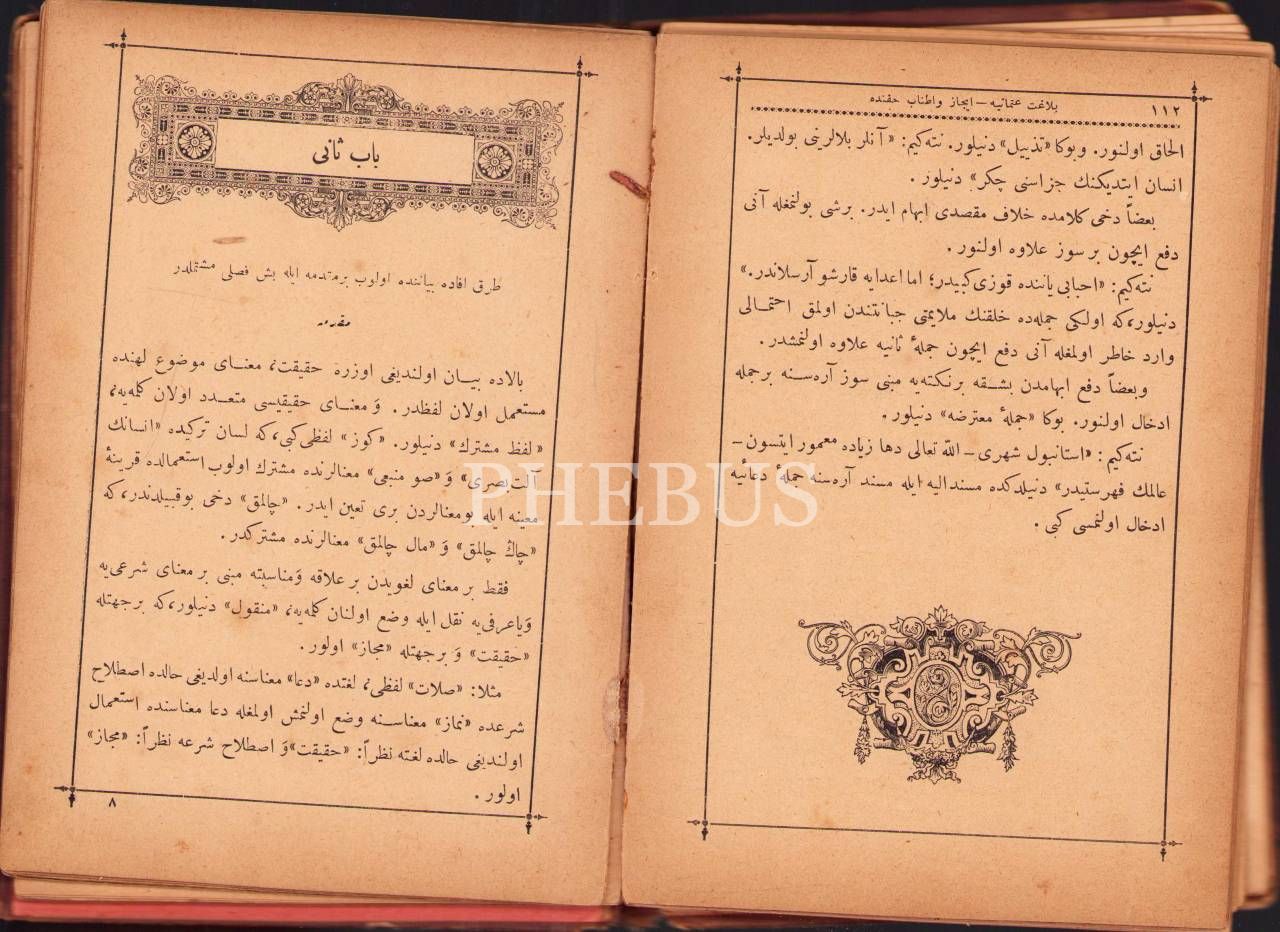 ١١٢
بلاغت عثمانیه – ایجاز و اطناب حقنده
الحاق اولنور. وبوكا «تذییل» دنیلور. نته‌كیم: «آنلر بلالرینی بولدیلر.
انسان ایتدیكنك جزاسنی چكر» دنیلور .
بعضاً دخی كلامده خلاف مقصدی ایهام ایدر. برشی بولنمغله آنی
دفع ایچون بر سوز علاوه اولنور.
نته‌كیم: «احبابی یاننده قوزی كبیدر؛ اما اعدایه قارشو آرسلاندر.»
دنیلور، كه اولكی جمله‌ده خلقنك ملایمتی جبانتندن اولمق احتمـالی
وارد خاطر اولمغله آنی دفع ایچون جملهٔ ثانیه علاوه اولنمشدر.
وبعضاً دفع ایهامدن بشـقه برنكته‌یه مبنی سوز آره‌سـنه برجمله
ادخال اولنور. بوكا «جملهٔ معترضه» دنیلور.
نته‌كیم: «استانبول شهری – الله تعالی دها زیاده معمور ایتسون –
عالمك فهرستیدر» دنیلدكده مسند الیه ایله مسند آره‌سنه جملهٔ دعائیه
ادخال اولنمسی كبی .
باب ثانی
طرق افاده بیاننده اولوب برمقدمه ایله بش فصلی مشتملدر
مقدمه
بالاده بیـان اولندیغی اوزره حقیقت، معنـای موضوع لهنده
مستعمل اولان لفظدر . وَ معنـای حقیقیسی متعـدد اولان كلمه‌یه،
«لفظ مشترك» دنیلور. «كوز» لفظی كبی، كه لسان تركیده «انسانك
آلت بصری» وَ «صو منبعی» معنالرنده مشترك اولوب استعمالده قرینهٔ
معینه ایله بومعنالردن بری تعین ایدر . «چالمق» دخی بوقبیلدندر، كه
«چاڭ چالمق» وَ «مال چالمق» معنالرنده مشتركدر.
فقط بر معنای لغویدن بر علاقه وَمناسبته مبنی بر معنای شرعی‌یه
وَیاعرفی‌یه نقل ایله وضع اولنان كلمه‌یه، «منقول» دنیلور، كه برجهتله
«حقیقت» وَ برجهتله «مجاز» اولور .
مثلا: «صلات» لفظی، لغتده «دعا» معناسنه اولدیغی حالده اصطلاح
شرعده «نماز» معناسـنه وضع اولنمش اولمغله دعا معناسنده استعمال
اولندیغی حالده لغته نظراً: «حقیقت» وَ اصطلاح شرعه نظراً: «مجاز»
اولور .
٨
PHEBUS